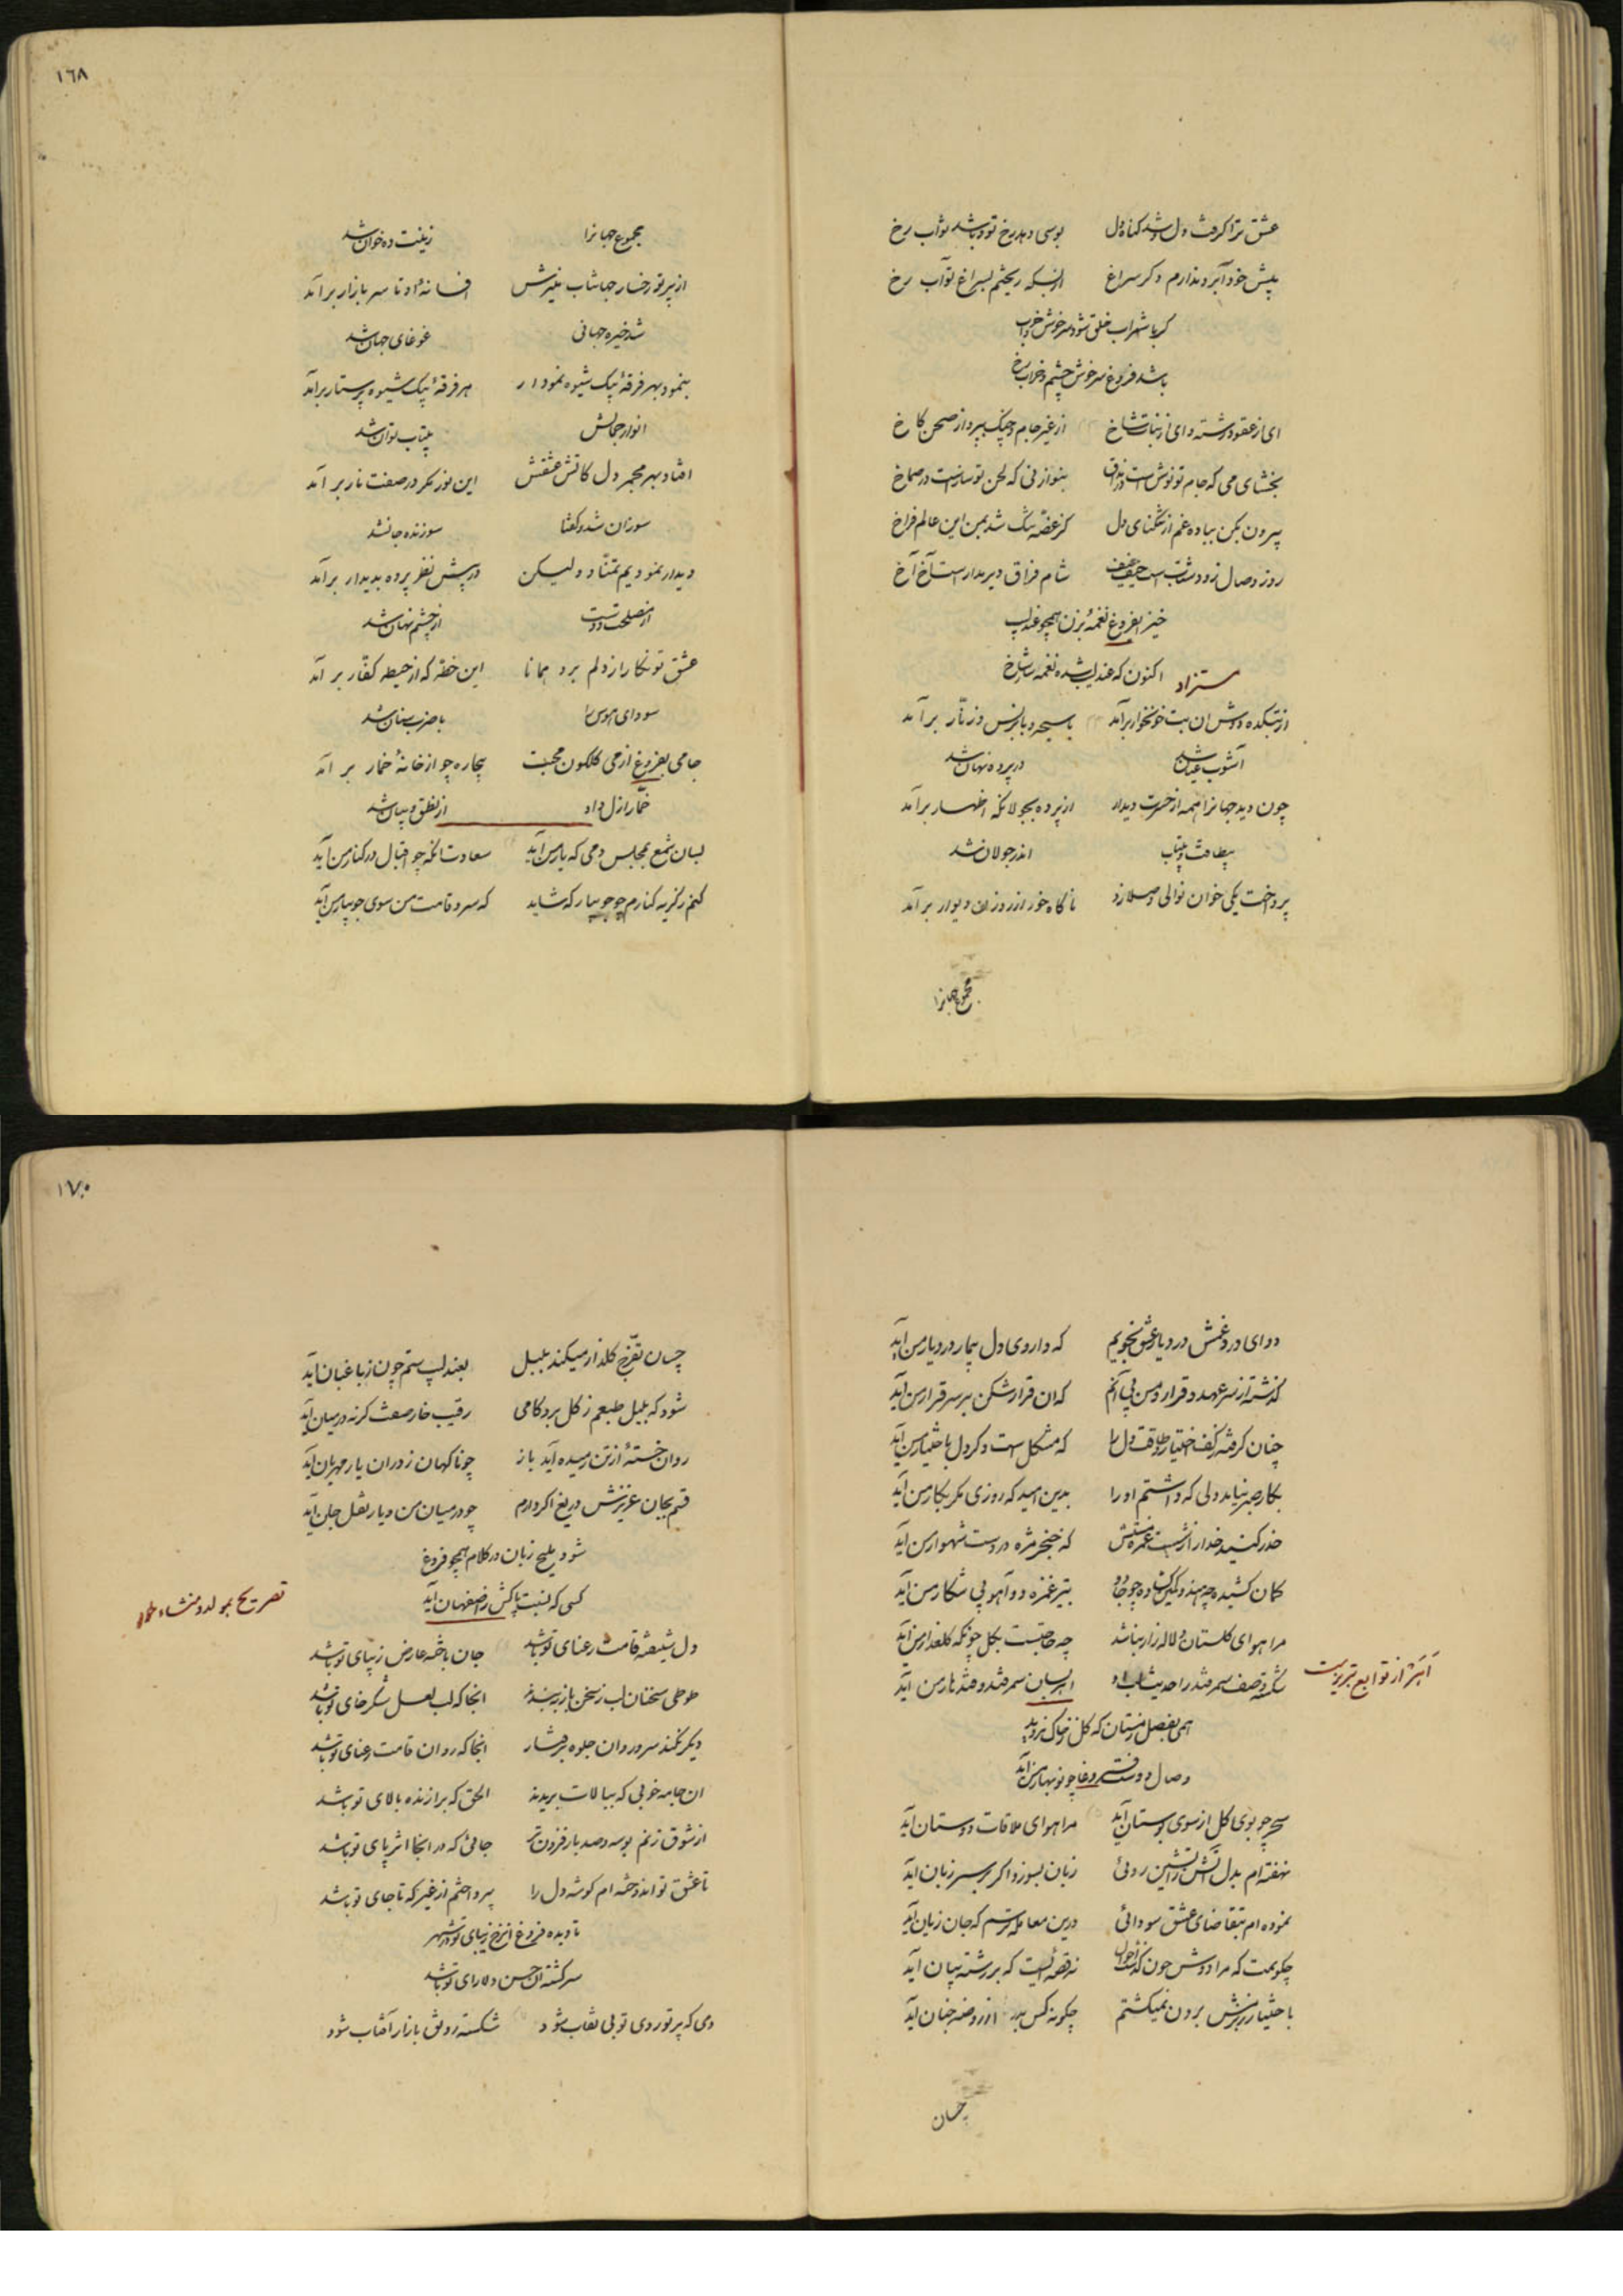 عشق ترا گرفت دل و شد گناه دل بوسی دهد رخ تو و باشد ثواب رخ
پیش خود آبرو ندارم دگر سراغ از بسکه ریختم بسراغ تو آب رخ
گر با شراب خلق شود سرخوش خراب
باشد فروغ سرخوش چشم و خراب رخ
ای از عقود رشته وای از نبات شاخ از غیر جام و چنگ بپرداز صحن کاخ
بخشای می که جام تو نوش است در مذاق بنواز نی که لحن تو ساز است در صماخ
بیرون بکن بباده غم از تنگنای دل کز غصه تنگ شد بمن این عالم فراخ
روز وصال زود شتاب است حیف حیف شام فراق دیر مدار است آخ آخ
خیز ای فروغ نغمه بزن همچو عندلیب
اکنون که عندلیب شده نغمه ز شاخ
مستزاد
از بتکده دوش ان بت خونخوار برآمد با سبحه و با برنس و زنار بر آمد
آشوب عیان شد در پرده نهان شد
چون دید جهانرا همه از حسرت دیدار از پرده بجولانگه اظهار برآمد
بیطاقت و بیتاب اندر جولان شد
پرداخت یکی خوان نوالی و صلا زد ناگاه خور از روزن دیوار بر آمد
مجموع جهانرا
١٦٨
مجموع جهانرا زینت ده خوان شد
از پرتو رخسار جهانتاب منیرش افسانهٔ او تا سر بازار برآمد
شد خیره جهانی غوغای جهان شد
بنمود بهر فرقهٔ یک شیوه نمودار هر فرقهٔ یک شیوه پرستار برآمد
انوار جمالش بیتاب توان شد
افتاد بهر مجمر دل کاتش عشقش این نور مگر در صفت نار بر آمد
سوزان شد و گفتا سوزنده جان شد
دیدار نمودیم تمنا و ولیکن در پیش نظر پرده بدیدار برآمد
از مصلحت دوست از چشم نهان شد
عشق تو نگارا ز دلم برد همانا این خطه که از حیطه کفار بر آمد
سودای هوس را با ضرب سنان شد
جامی بفروغ از می گلگون محبت بیچاره چو از خانهٔ خمار بر آمد
خمار ازل داد از نطق و بیان شد
بسان شمع بمجلس دمی که یار من آید سعادت انکه چو اقبال در کنار من آید
کنم ز گریه کنارم چو جویبار که شاید که سرو قامت من سوی جویبار من آید
دوای درد غمش در دیار عشق نجویم که داروی دل بیمار در دیار من آید
گذشته از سر عهد و قرار و من پی آنم که ان قرار شکن بر سر قرار من آید
چنان گرفته ز کف اختیار و طاقت دل را که مشکل است دگر دل باختیار من آید
بکار صبر نیاید دلی که داشتم او را بدین امید که روزی مگر بکار من آید
حذر کنید خدا را ز شست غمزه مستش که خنجر مژه در دست شهسوار من آید
کمان کشیده چه هندو کمین گشاده چو جادو بتیر غمزه دو آهو پی شکار من آید
مرا هوای گلستان و لاله زار نباشد چه حاجتست بگل چونکه گلعذار من آید
شکسته وصف سمرقند را حدیث لب او اهر بسان سمرقند و قند هار من آید
اهر از توابع تبریز است
همی بفصل زمستان که گل ز خاک نروید
وصال دوست فروغا چو نوبهار من آید
سحر چو بوی گل از سوی بوستان آید مرا هوای ملاقات دوستان آید
نهفته‌ام بدل آتش ز آتشین روئی زبان بسوزد اگر بر سر زبان آید
نموده‌ام بتقاضای عشق سودائی درین معامله ترسم که جان زیان آید
چگویمت که مرا دوش چون گذشت احوال نه قصه ایست که بر رشته بیان آید
باختیار ز بزمش برون نمیگشتم چگونه کس بدر از روضه جنان آید
چسان
١٧٠
چسان تفرج گلذار میکند بلبل بعندلیب ستم چون ز باغبان آید
شود که بلبل طبعم ز گل برد کامی رقیب خار صفت گر نه در میان آید
روان خستهٔ از تن رمیده آید باز چو ناگهان ز در ان یار مهربان آید
قسم بجان عزیزش دریغ اگر دارم چو در میان من و یار نقل جان آید
شود ملیح زبان در کلام همچو فروغ
کسی که نسبت پاکش ز اصفهان آید
تصریح بمولد و منشاء خود
دل شیفته قامت رعنای تو باشد جان باخته عارض زیبای تو باشد
طوطی سخنان لب ز سخن باز ببندند انجا که لب لعل شکرخای تو باشد
دیگر نکند سرو روان جلوه برفتار انجا که روان قامت رعنای تو باشد
ان جامه خوبی که ببالات بریدند الحق که برازنده بالای تو باشد
از شوق زنم بوسه دو صد بار فزون‌تر جائی که در انجا اثر پای تو باشد
تا عشق تو اندوخته‌ام گوشه دل را پرداختم از غیر که تا جای تو باشد
تا دیده فروغ از رخ زیبای تو در شهر
سرگشته ان حسن دلارای تو باشد
دمی که پرتو روی تو بی نقاب شود شکسته رونق بازار آفتاب شود